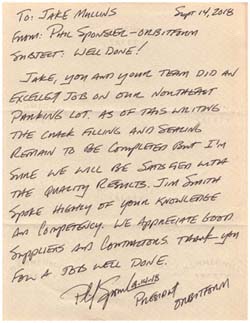 To: Jake Mullins Sept 14, 2018
From: Phil Sponsler - Orbitform
Subject: Well Done!
Jake, you and your team did an
excellet job on our northeast
parking lot. As of this writing
the crack filling and sealing
remain to be completed but I'm
sure we will be satisfied with
the quality results. Jim Smith
spoke highly of your knowledge
an competency. We appreciate good
suppliers and contractors. Thank you
for a job well done.
President
Orbitform